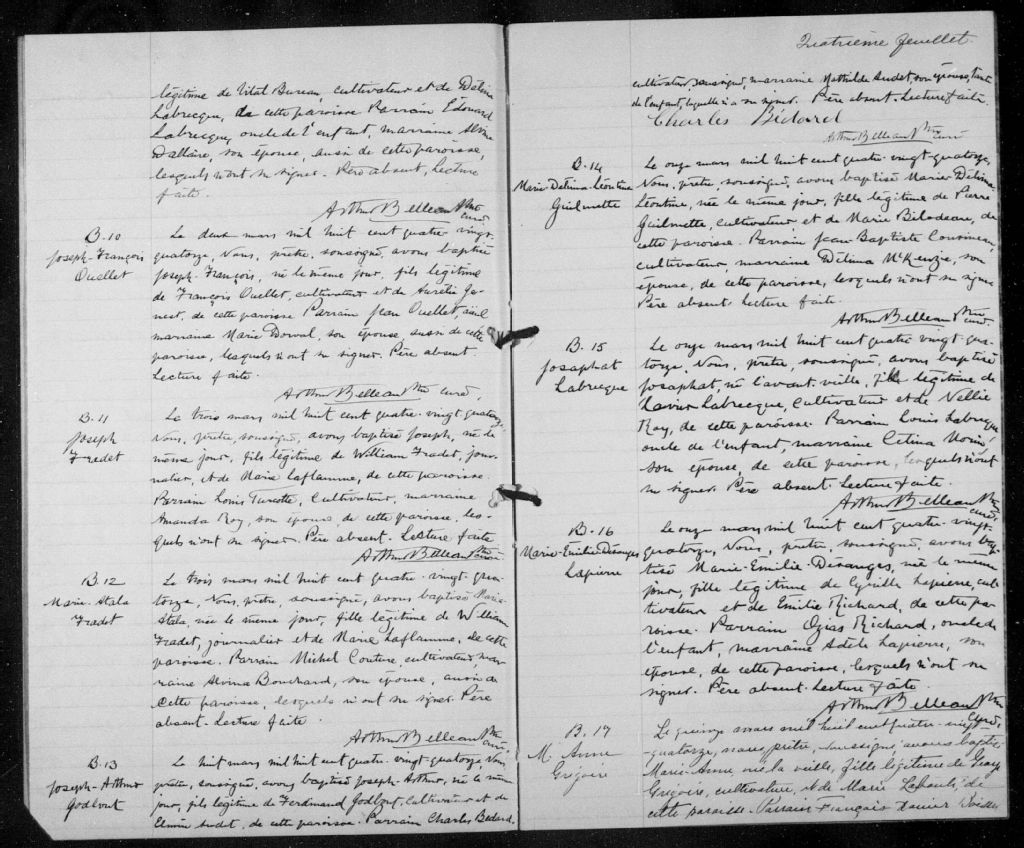 légitime de Vital Bureau, cultivateur et de Délina
Labrecque, de cette paroisse Parrain Edouard
Labrecque, oncle de l'enfant, marraine
Dallaire, son épouse, aussi de cette paroisse,
lesquels n'ont su signer. Père absent, Lecture
faite.
Arthur Belleau Ptre
curé
B.10
Joseph-François
Ouellet
Le deux mars mil huit cent quatre vingt
quatorze, Nous, prêtre, soussigné, avons baptisé
Joseph-François, né le même jour, fils légitime
de François Ouellet, cultivateur et de Aurélie Ge-
nest, de cette paroisse Parrain Jean Ouellet, aïeul
marraine Marie Dorval, son épouse, aussi de cette
paroisse, lesquels n'ont su signer. Père absent.
Lecture faite.
Arthur Belleau Ptre curé,
B.11
Joseph
Fradet
Le trois mars mil huit cent quatre-vingt quatorze,
Nous, prêtre, soussigné, avons baptisé Joseph, né le
même jour, fils légitime de William Fradet, jour-
nalier, et de Marie Laflamme, de cette paroisse.
Parrain Louis Turcotte, Cultivateur, marraine
Amanda Roy, son épouse de cette paroisse, les-
quels n'ont su signer. Père absent. Lecture faite
Arthur Belleau Ptre curé
B.12
Marie-Stala
Fradet
Le trois mars mil huit cent quatre-vingt qua-
torze, Nous, prêtre, soussigné, avons baptisé Marie
Stala, née le même jour, fille légitime de William
Fradet, journalier et de Marie Laflamme, de cette
paroisse. Parrain Michel Couture, cultivateur, mar-
raine Alvina Bouchard, son épouse, aussi de
Cette paroisse, lesquels n'ont su signer. Père
absent. Lecture faite.
Arthur Belleau Ptre
curé.
B.13
Joseph-Arthur
Godbout
Le huit mars mil huit cent quatre-vingt quatorze, Nous,
prêtre, soussigné, avons baptisé Joseph-Arthur, né le même
jour, fils légitime de Ferdinand Godbout, Cultivateur et de
Audet, de cette paroisse. Parrain Charles Bedard.
Quatrième feuillet.
cultivateur, soussigné, marraine Mathilde Audet, son épouse, tante
de l'enfant, laquelle n'a su signer. Père absent. Lecture faite.
Charles Bédard
Arthur Belleau Ptre
curé
B.14
Marie-Délima-Léontine
Guilmette
Le onze mars mil huit cent quatre-vingt-quatorze,
Nous, prêtre, soussigné, avons baptisé Marie-Délima-
Léontine, née le même jour, fille légitime de Pierre
Guilmette, cultivateur, et de Marie Bilodeau, de
cette paroisse. Parrain Jean-Baptiste Cousineau,
cultivateur, marraine Délima McKenzie, son
épouse, de cette paroisse, lesquels n'ont su signer.
Père absent. Lecture faite.
Arthur Belleau Ptre
curé.
B.15
Josaphat
Labrecque
Le onze mars mil huit cent quatre vingt qua-
torze, Nous, prêtre, soussigné, avons baptisé
Josaphat, né l'avant veille, fils légitime de
Xavier Labrecque, Cultivateur et de Nellie
Roy, de cette paroisse. Parrain Louis Labrecque,
oncle de l'enfant, marraine Célina Morin,
son épouse, de cette paroisse, lesquels n'ont
su signer. Père absent. Lecture faite.
Arthur Belleau Ptre
curé.
B.16
Marie-Emilie-Désanges
Lapierre
Le onze mars mil huit cent quatre-vingt-
quatorze, Nous, prêtre, soussigné, avons bap-
tisé Marie-Emilie-Désanges, née le même
jour, fille légitime de Cyrille Lapierre, cul-
tivateur et de Emilie Richard, de cette pa-
roisse. Parrain Ozias Richard, oncle de
l'enfant, marraine Adèle Lapierre, son
épouse, de cette paroisse, lesquels n'ont su
signer. Père absent. Lecture faite.
Arthur Belleau Ptre
curé.
B.17
M. Anne
Grégoire
Le quinze mars mil huit cent quatre-vingt
quatorze, nous, prêtre, soussigné, avons baptisé
Marie-Anne, née la veille, fille légitime de
Grégoire, cultivateur, et de Marie de
cette paroisse. Parrain François Xavier